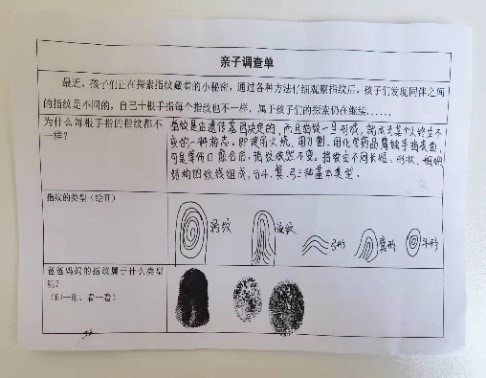 亲子调查单
最近，孩子们正在探索指纹藏着的小秘密，通过各种方法仔细观察指纹后，孩子们发现同伴之间
的指纹是不同的，自己十根手指每个指纹也不一样，属于孩子们的探索仍在继续……
为什么每根手指的指纹都不
一样？
指纹是由遗传基因决定的，而且指纹一旦形成，就成为某个人终生不
变的一种标志。即使用火烧、用刀割、用化学药品腐蚀手指表面，
可是等伤口愈合后，指纹依然不变。指纹由不同长短、形状、粗细
结构的纹线组成，分斗、箕、弓三种基本类型。
指纹的类型（绘画）
涡纹
弓形
箕形
斗形
爸爸妈妈的指纹属于什么类型
呢？
（印一印、看一看）